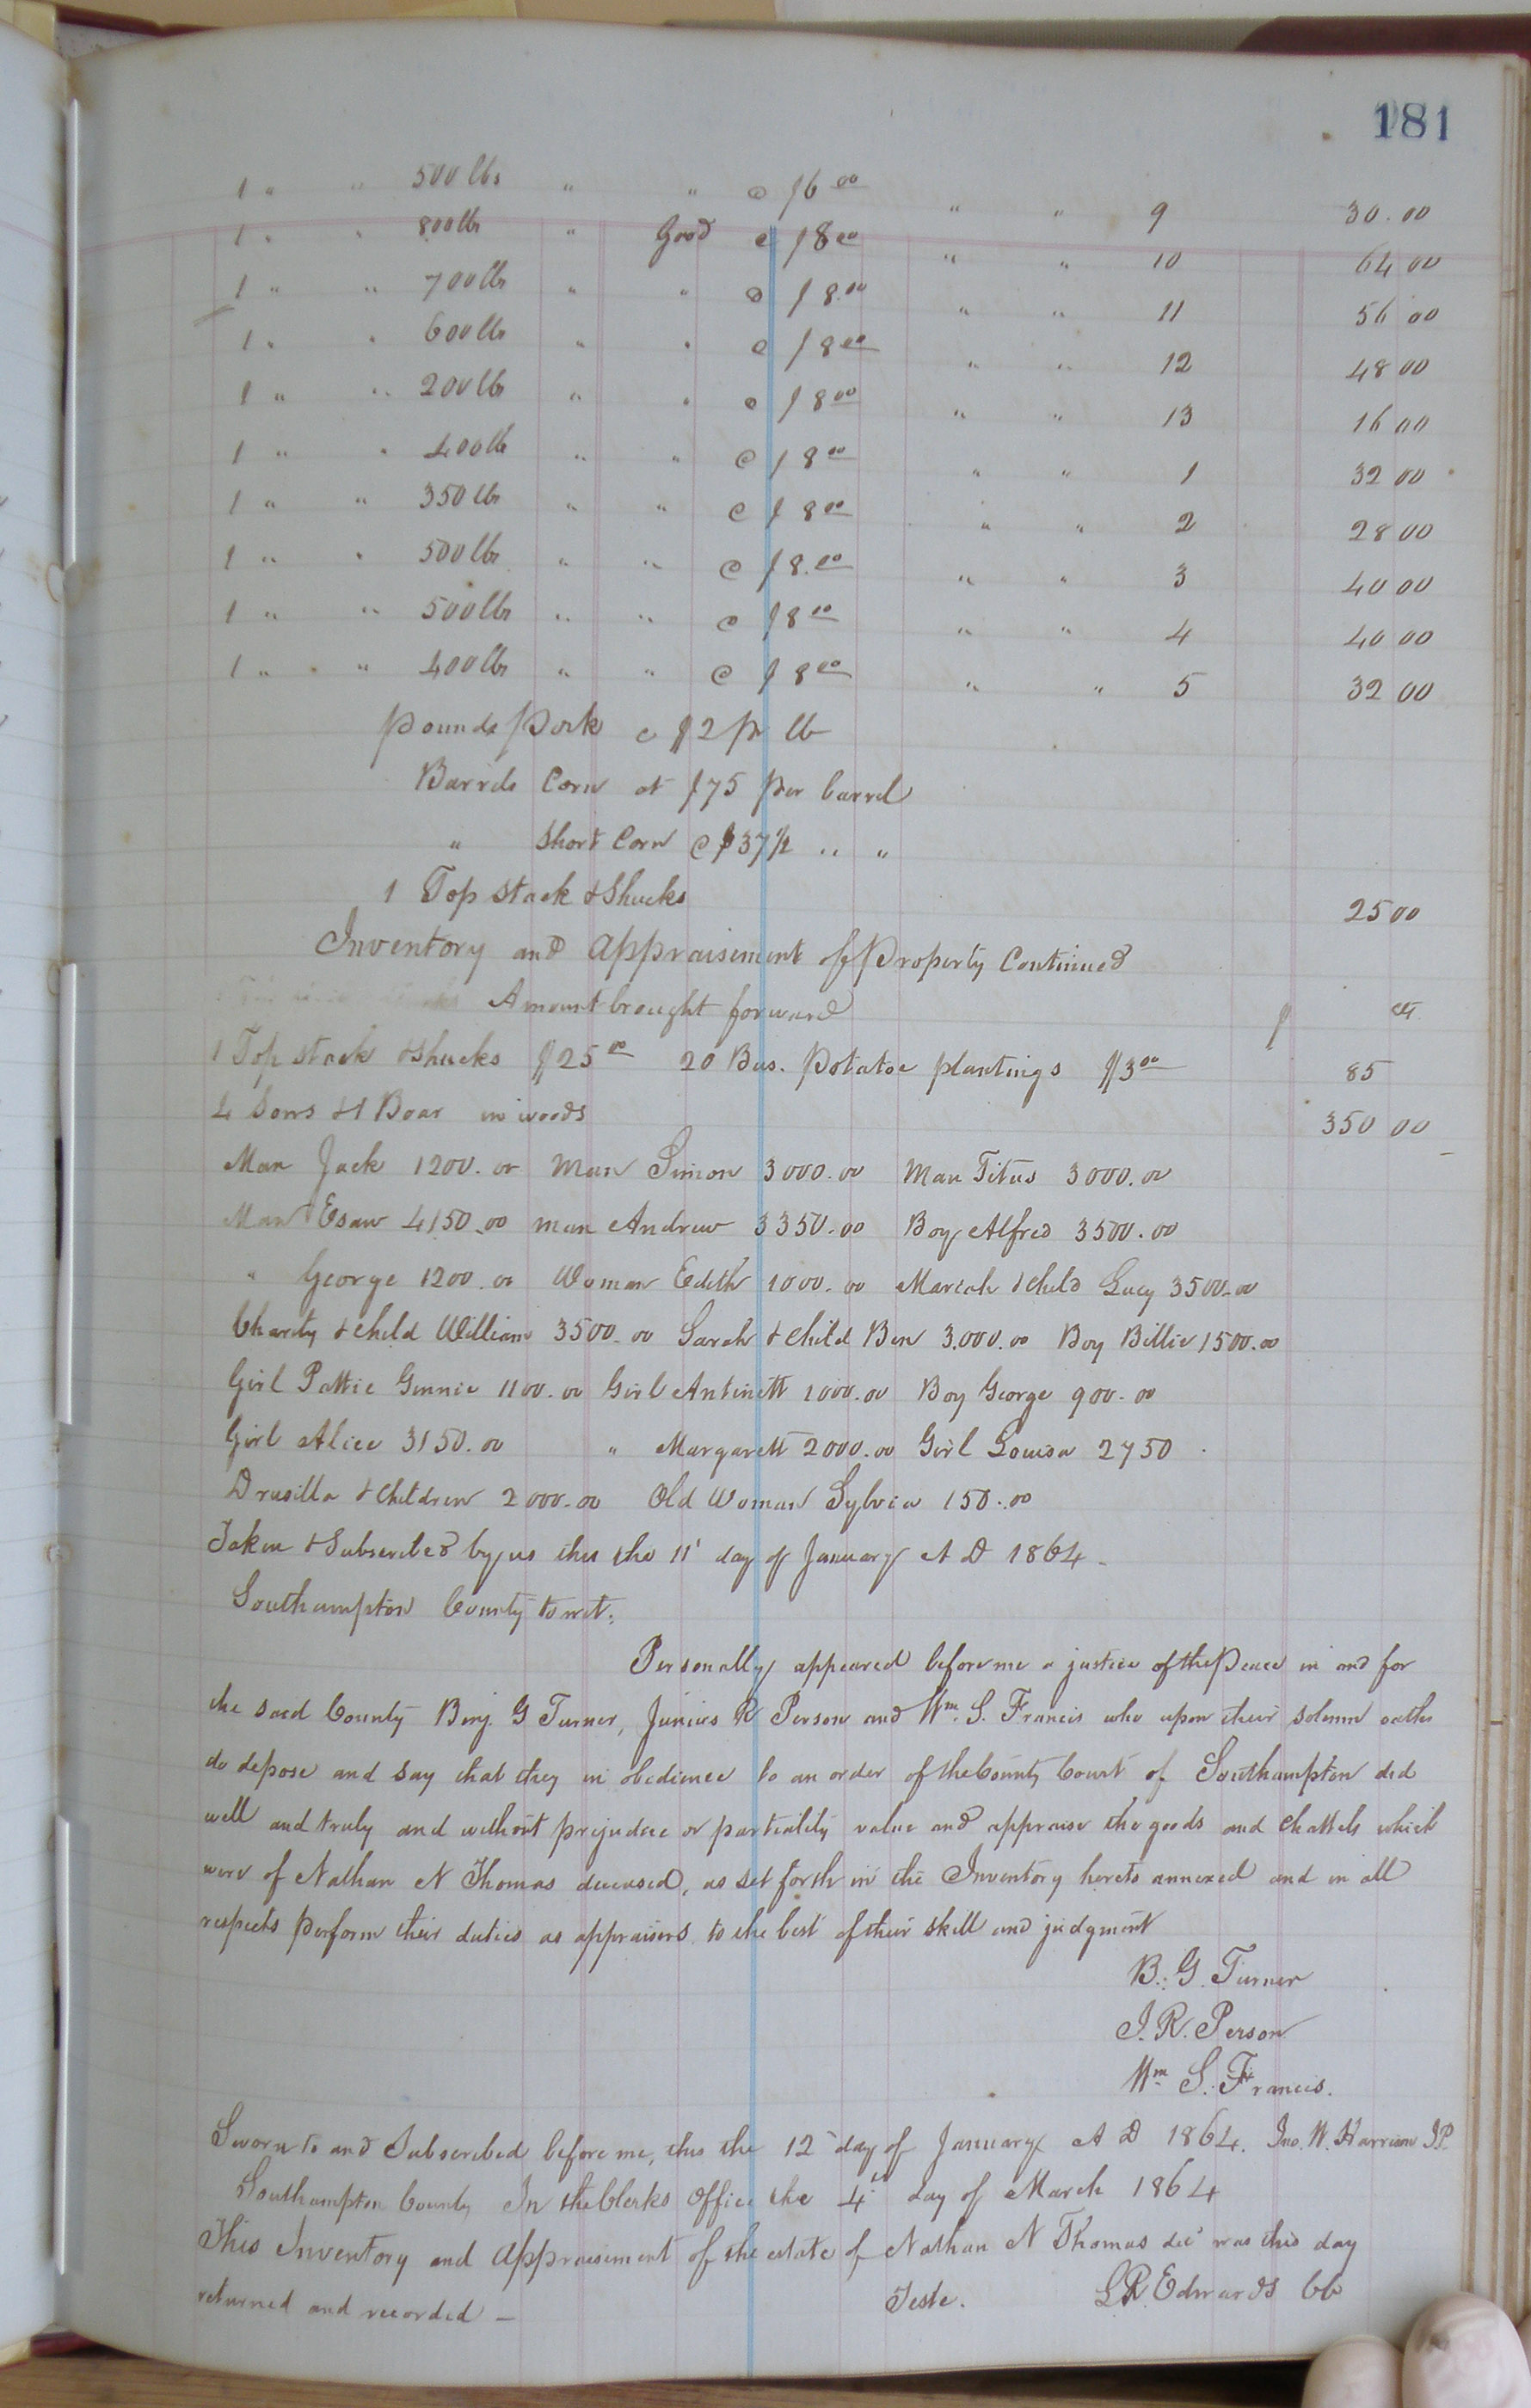 181
1 " " 500 lbs " " @ $6 00 " " 9 30.00
1 " " 800 lbs " Good @ $8 00 " " 10 64 00
1 " " 700 lbs " " @ $8.00 " " 11 56 00
1 " " 600 lbs " " @ $8 00 " " 12 48 00
1 " " 200 lbs " " @ $8 00 " " 13 16 00
1 " " 400 lbs " " @ $8 00 " " 1 32 00
1 " " 350 lbs " " @ $8 00 " " 2 28 00
1 " " 500 lbs " " @ $8.00 " " 3 40 00
1 " " 500 lbs " " @ $8 00 " " 4 40 00
1 " " 400 lbs " " @ $8 00 " " 5 32 00
Pounds Pork @ $2 pr lb
Barrels Corn at $75 per barrel
" Short Corn @ $37 1/2 " "
1 Top stack & Shucks 25 00
Inventory and appraisement of Property Continued
Amount brought forward $ cts
1 Top stack & shucks $25 00 20 Bus. Potatoe plantings $3 00 85
4 Sows & 1 Boar in woods 350 00
Man Jack 1200.00 Man Simon 3000.00 Man Titus 3000.00
Man Esaw 4150.00 man Andrew 3350.00 Boy Alfred 3500.00
" George 1200.00 Woman Edith 1000.00 Mariah & child Lucy 3500.00
Charity & child William 3500.00 Sarah & child Ben 3,000.00 Boy Billie 1500.00
Girl Pattie Ginnie 1100.00 Girl Antinett 1000.00 Boy George 900.00
Girl Alice 3150.00 " Margarett 2000.00 Girl Louisa 2750
Drusilla & children 2000.00 Old Woman Sylvia 150.00
Taken & Subscribed by us this the 11' day of January A D 1864
Southampton County to wit:
Personally appeared before me a justice of the Peace in and for
the said County Benj. G Turner, Junius R Person and Wm. S. Francis who upon their solemn oaths
do depose and say that they in obedience to an order of the County Court of Southampton did
well and truly and without prejudice or partiality value and appraise the goods and chattels which
were of Nathan N Thomas deceased, as set forth in the Inventory hereto annexed and in all
respects perform their duties as appraisers to the best of their skill and judgment
B. G. Turner
J. R. Person
Wm S. Francis.
Sworn to and Subscribed before me, this the 12 day of January A D 1864. Jno. W. Harrison J.P.
Southampton County In the Clerks Office the 4' day of March 1864
This Inventory and Appraisement of the estate of Nathan N Thomas dec' was this day
returned and recorded – Teste. L R Edwards CC